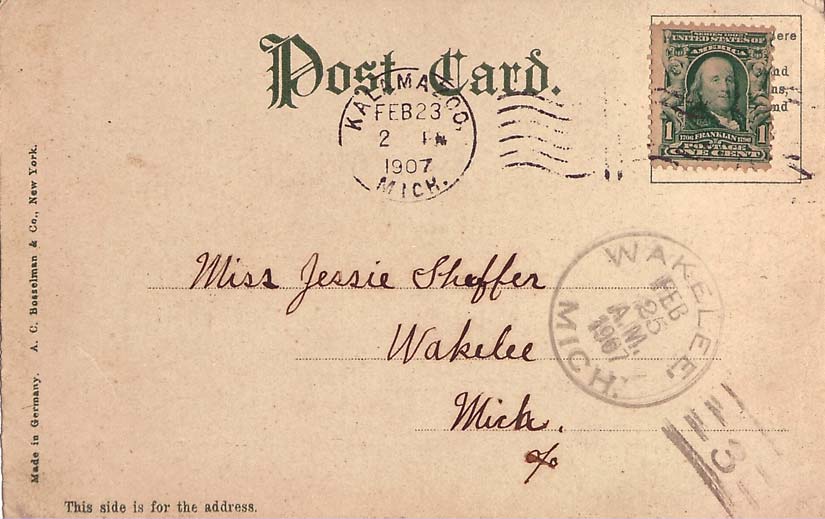 Post Card.
KALAMAZOO,
FEB 23
2 PM
1907
MICH.
SERIES 1902
UNITED STATES OF
AMERICA
1706 FRANKLIN 1790
1 1
POSTAGE
ONE CENT
ere
nd
ns,
nd
Miss Jessie Sheffer
Wakelee
Mich.
WAKELEE,
FEB
25
A.M.
1907
MICH.
3
Made in Germany. A. C. Bosselman & Co., New York.
This side is for the address.